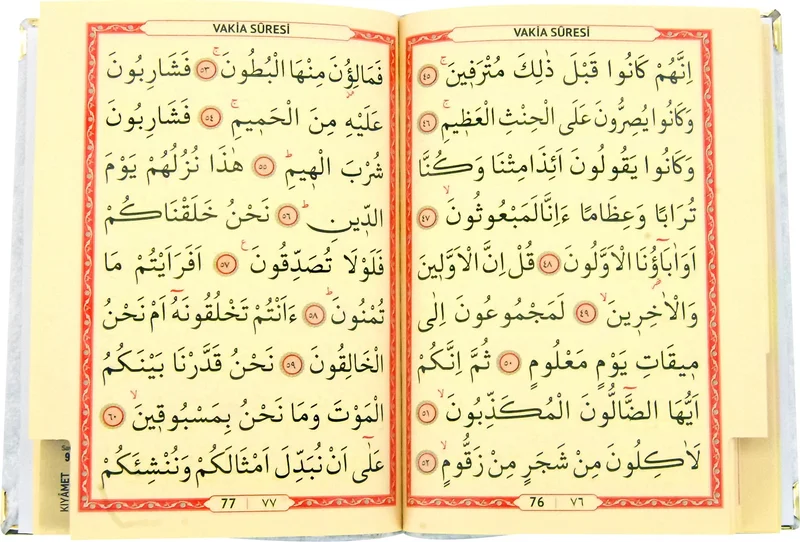 VAKİA SÛRESİ
اِنَّهُمْ كَانُوا قَبْلَ ذٰلِكَ مُتْرَفٖينَۚ ﴿٤٥﴾
وَكَانُوا يُصِرُّونَ عَلَى الْحِنْثِ الْعَظٖيمِۚ ﴿٤٦﴾
وَكَانُوا يَقُولُونَ اَئِذَا مِتْنَا وَكُنَّا
تُرَابًا وَعِظَامًا ءَاِنَّا لَمَبْعُوثُونَۙ ﴿٤٧﴾
اَوَاٰبَٓاؤُنَا الْاَوَّلُونَ ﴿٤٨﴾ قُلْ اِنَّ الْاَوَّلٖينَ
وَالْاٰخِرٖينَۙ ﴿٤٩﴾ لَمَجْمُوعُونَ اِلٰى
مٖيقَاتِ يَوْمٍ مَعْلُومٍ ﴿٥٠﴾ ثُمَّ اِنَّكُمْ
اَيُّهَا الضَّٓالُّونَ الْمُكَذِّبُونَۙ ﴿٥١﴾
لَاٰكِلُونَ مِنْ شَجَرٍ مِنْ زَقُّومٍۙ ﴿٥٢﴾
76 | ٧٦
VAKİA SÛRESİ
فَمَالِؤُنَ مِنْهَا الْبُطُونَۚ ﴿٥٣﴾ فَشَارِبُونَ
عَلَيْهِ مِنَ الْحَمٖيمِۚ ﴿٥٤﴾ فَشَارِبُونَ
شُرْبَ الْهٖيمِؕ ﴿٥٥﴾ هٰذَا نُزُلُهُمْ يَوْمَ
الدّٖينِؕ ﴿٥٦﴾ نَحْنُ خَلَقْنَاكُمْ
فَلَوْلَا تُصَدِّقُونَ ﴿٥٧﴾ اَفَرَاَيْتُمْ مَا
تُمْنُونَؕ ﴿٥٨﴾ ءَاَنْتُمْ تَخْلُقُونَهُٓ اَمْ نَحْنُ
الْخَالِقُونَ ﴿٥٩﴾ نَحْنُ قَدَّرْنَا بَيْنَكُمُ
الْمَوْتَ وَمَا نَحْنُ بِمَسْبُوقٖينَۙ ﴿٦٠﴾
عَلٰٓى اَنْ نُبَدِّلَ اَمْثَالَكُمْ وَنُنْشِئَكُمْ
77 | ٧٧
KIYÂMET